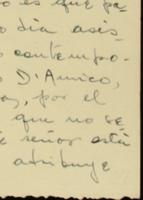 o es que pa-
o día asis-
o contempo-
D'Amico,
por el
que no se
e señor está
atribuye